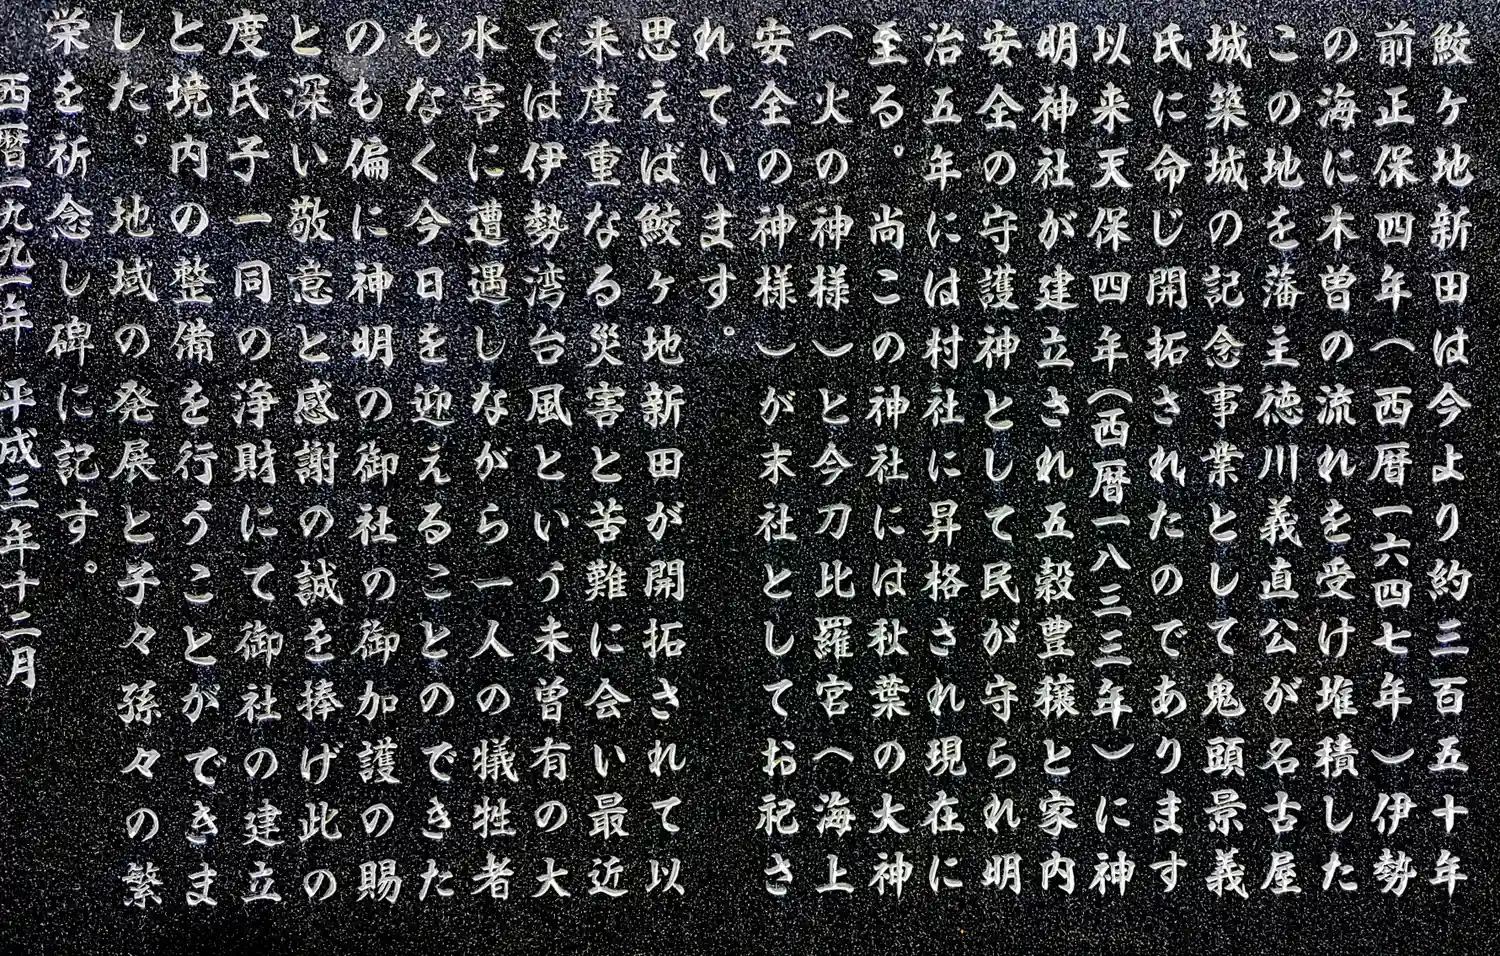 鮫ヶ地新田は今より約三百五十年
前正保四年（西暦一六四七年）伊勢
の海に木曽の流れを受け堆積した
この地を藩主徳川義直公が名古屋
城築城の記念事業として鬼頭景義
氏に命じ開拓されたのであります
以来天保四年（西暦一八三三年）に神
明神社が建立され五穀豊穣と家内
安全の守護神として民が守られ明
治五年には村社に昇格され現在に
至る。尚この神社には秋葉の大神
（火の神様）と今刀比羅宮（海上
安全の神様）が末社としてお祀さ
れています。
思えば鮫ヶ地新田が開拓されて以
来度重なる災害と苦難に会い最近
では伊勢湾台風という未曽有の大
水害に遭遇しながら一人の犠牲者
もなく今日を迎えることのできた
のも偏に神明の御社の御加護の賜
と深い敬意と感謝の誠を捧げ此の
度氏子一同の浄財にて御社の建立
と境内の整備を行うことができま
した。地域の発展と子々孫々の繁
栄を祈念し碑に記す。
西暦一九九一年 平成三年十二月